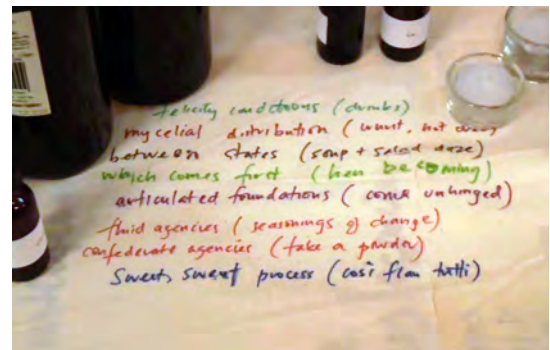 felicity conditions (drinks)
mycelial distribution (want, not
between states (soup + salad daze)
which comes first (hen becoming)
articulated foundations (come unhinged)
fluid agencies (seasonings of change)
confederate agencies (take a powder)
Sweet, sweet process (cosi flan tutti)